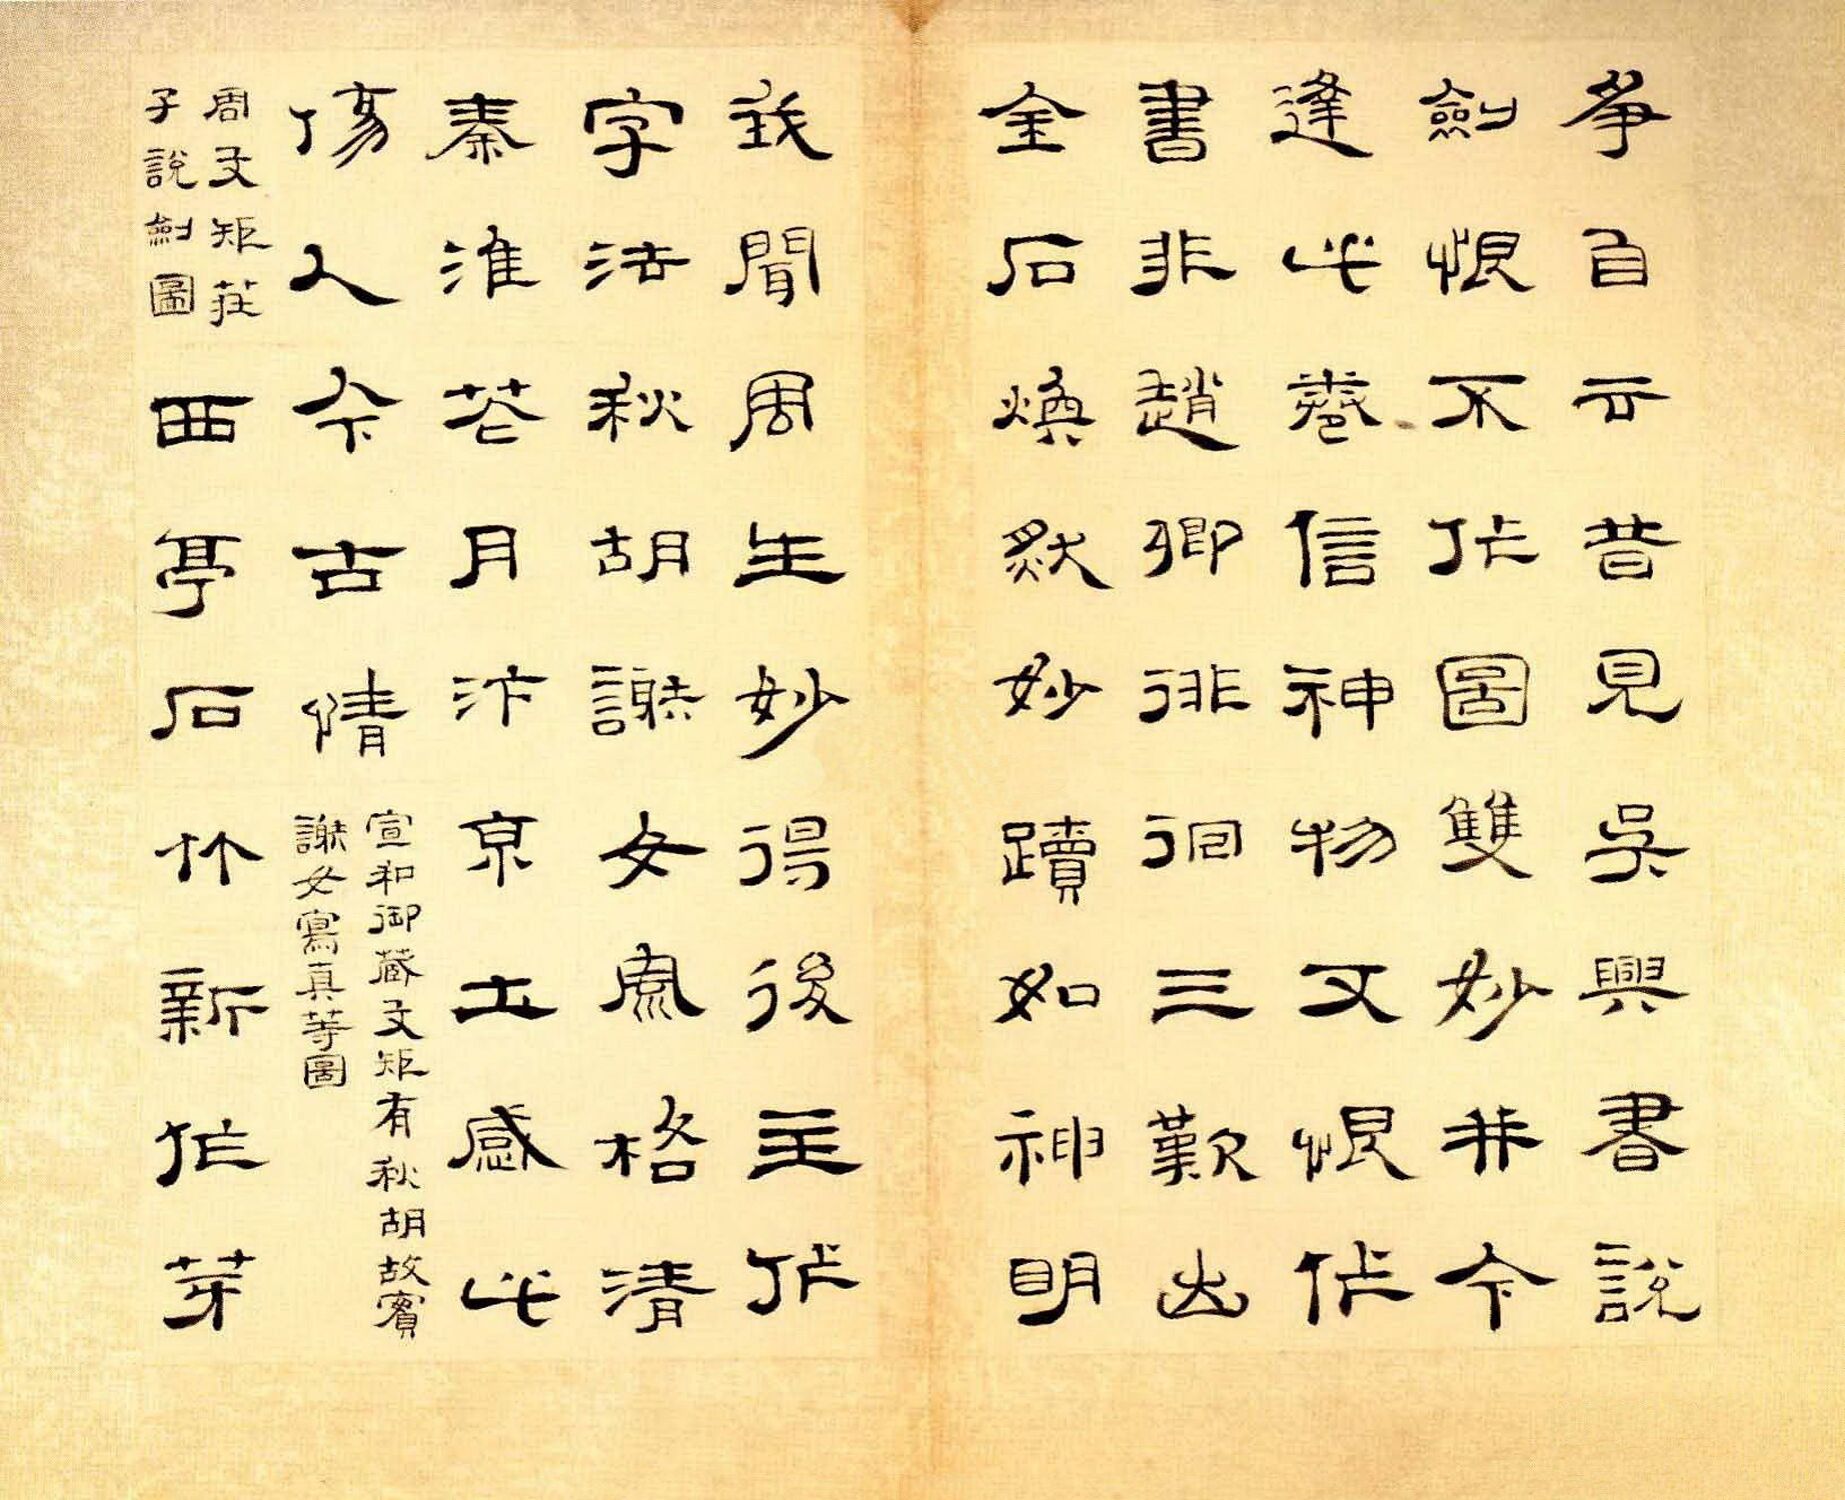 爭自云昔見吳興書說
劍恨不作圖雙妙并今
逢此卷信神物又恨作
書非趙卿徘徊三歎出
金石煥然妙蹟如神明
我聞周生妙得後主作
字法秋胡謝女風格清
秦淮花月汴京土感此
傷人今古情
宣和御藏文矩有秋胡故實
謝女寫真等圖
周文矩莊
子說劍圖
西亭石竹新作芽